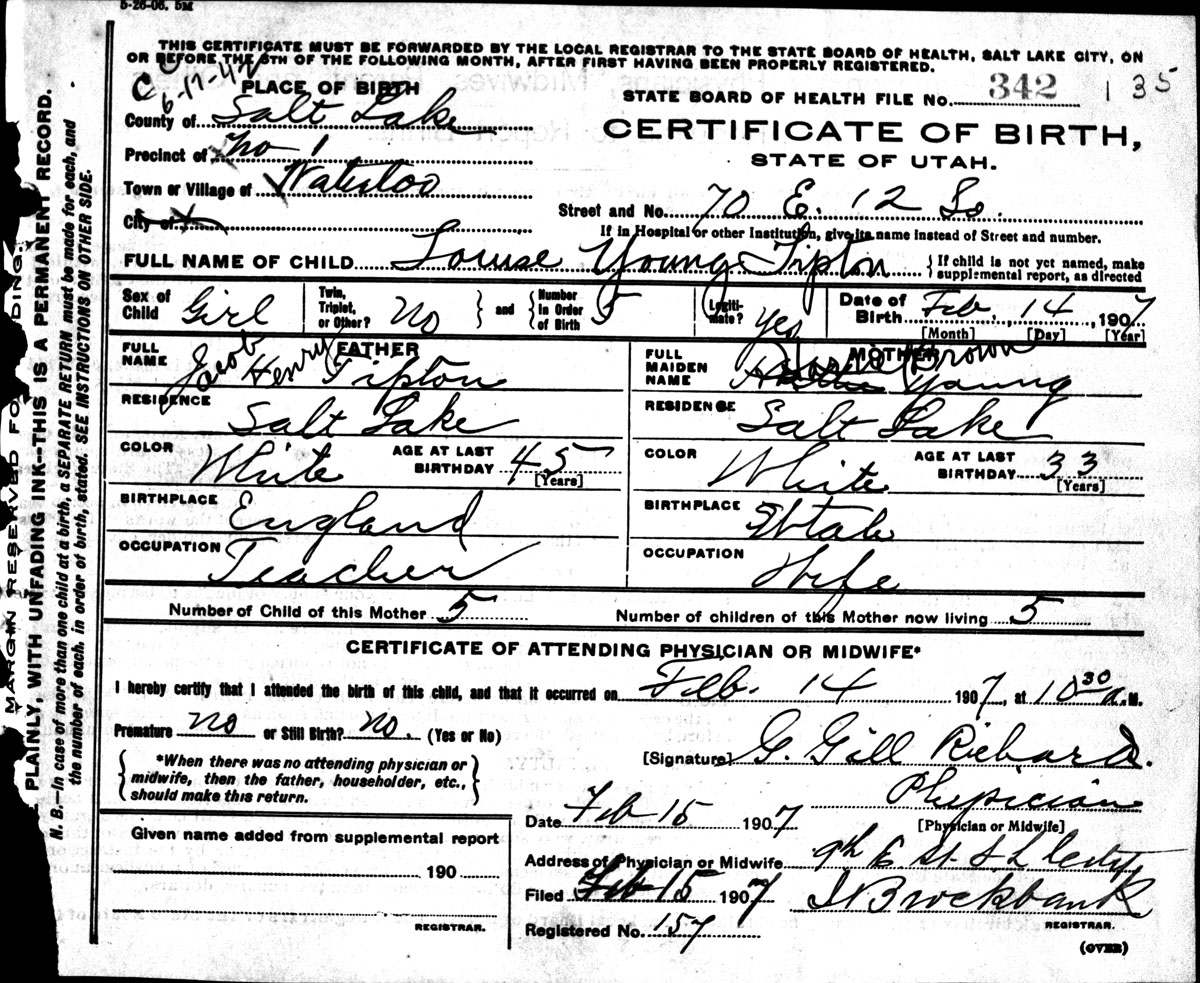 5-26-06. 5M
THIS CERTIFICATE MUST BE FORWARDED BY THE LOCAL REGISTRAR TO THE STATE BOARD OF HEALTH, SALT LAKE CITY, ON
OR BEFORE THE 5TH OF THE FOLLOWING MONTH, AFTER FIRST HAVING BEEN PROPERLY REGISTERED.
6-17-42
PLACE OF BIRTH
STATE BOARD OF HEALTH FILE No. 342 135
County of Salt Lake
CERTIFICATE OF BIRTH,
STATE OF UTAH.
Precinct of No 1
Town or Village of Waterloo
City of
Street and No. 70 E. 12 So.
If in Hospital or other Institution, give its name instead of Street and number.
FULL NAME OF CHILD Louise Young Tipton
If child is not yet named, make
supplemental report, as directed
Sex of Child Girl
Twin, Triplet, or Other? No
and
Number in Order of Birth 5
Legitimate? yes
Date of Birth Feb. 14, 1907
[Month] [Day] [Year]
FATHER
FULL NAME Jacob Henry Tipton
RESIDENCE Salt Lake
COLOR White
AGE AT LAST BIRTHDAY 45
[Years]
BIRTHPLACE England
OCCUPATION Teacher
MOTHER
FULL MAIDEN NAME Brown Young
RESIDENCE Salt Lake
COLOR White
AGE AT LAST BIRTHDAY 33
[Years]
BIRTHPLACE Utah
OCCUPATION Wife
Number of Child of this Mother 5
Number of children of this Mother now living 5
CERTIFICATE OF ATTENDING PHYSICIAN OR MIDWIFE*
I hereby certify that I attended the birth of this child, and that it occurred on Feb. 14 1907, at 10 30 a.M.
Premature no or Still Birth? no. (Yes or No)
[Signature] G. Gill Richard.
*When there was no attending physician or
midwife, then the father, householder, etc.,
should make this return.
Physician
[Physician or Midwife]
Date Feb 15 1907
Given name added from supplemental report
190
REGISTRAR.
Address of Physician or Midwife 9th E St. S L City
Filed Feb 15 1907
Brockbank
REGISTRAR.
Registered No. 157
(OVER)
MARGIN RESERVED FO DING
PLAINLY, WITH UNFADING INK--THIS IS A PERMANENT RECORD.
N. B.--In case of more than one child at a birth, a SEPARATE RETURN must be made for each, and
the number of each, in order of birth, stated. SEE INSTRUCTIONS ON OTHER SIDE.